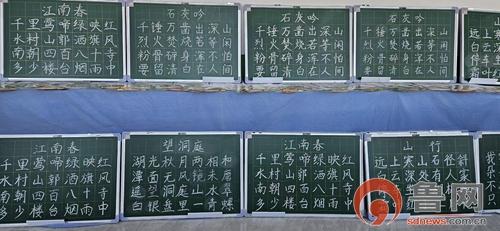 江南春
千里莺啼绿映红
水村山郭酒旗风
南朝四百八十寺
多少楼台烟雨中
石灰吟
千锤万凿出深山
烈火焚烧若等闲
粉骨碎身浑不怕
要留清白在人间
石灰吟
千锤万凿出深山
烈火焚烧若等闲
粉骨碎身浑不怕
要留清白在人间
石灰吟
千锤万凿出深山
烈火焚烧若等闲
粉骨碎身浑不怕
要留清白在人间
远上寒
白云
停车
霜叶
江南春
千里莺啼绿映红
水村山郭酒旗风
南朝四百八十寺
多少楼台烟雨中
望洞庭
湖光秋月两相和
潭面无风镜未磨
遥望洞庭山水翠
白银盘里一青螺
江南春
千里莺啼绿映红
水村山郭酒旗风
南朝四百八十寺
多少楼台烟雨中
山行
远上寒山石径斜
白云深处有人家
停车
霜叶
鲁网
sdnews.com.cn